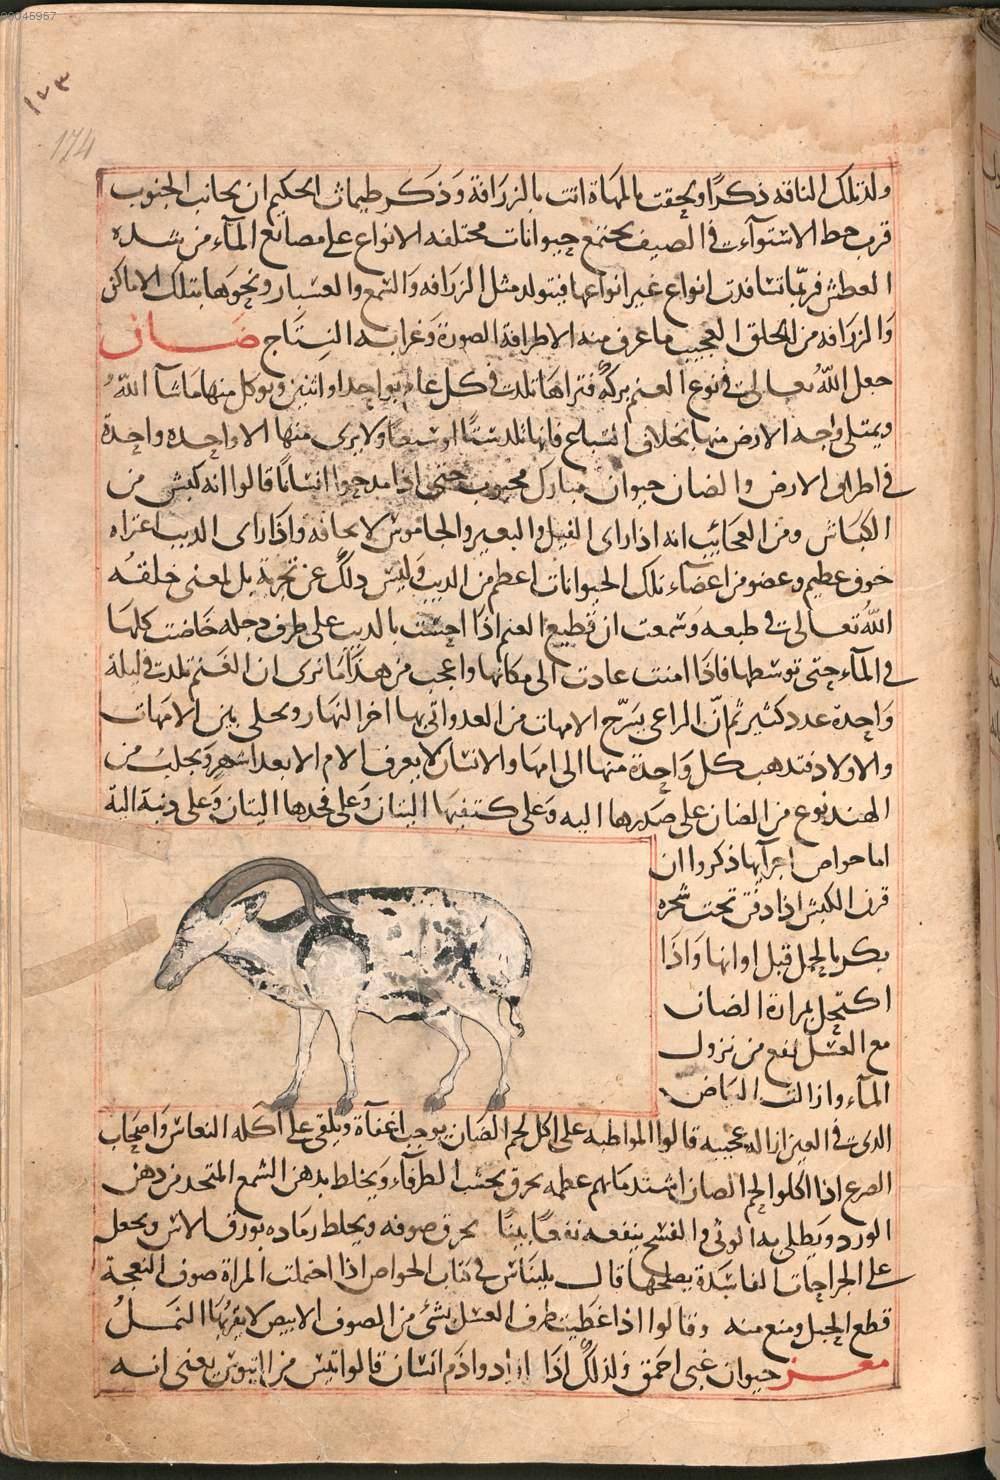 00045957
١٢٣
124
ولد تلك الناقه ذكرا ولحقت بالمهاة اتت بالزرافة وذكر طيماث الحكيم ان بجانب الجنوب
قرب خط الاستوآء في الصيف يجتمع حيوانات مختلفه الانواع على مصانع المآء من شده
العطش فربما تسافدت انواع غير انواعها فيتولد مثل الزرافه والسمع والعسبار ونحوها بتلك الاماكن
والزرافه من الخلق العجيب ما عرف منه الا طرافة الصورة وغرابه النتاج ضان
جعل الله تعالى في نوع الغنم بركه فتراها تلد في كل عام بواحد او اثنين ويوكل منها ما شآ الله
ويمتلى وجه الارض منها بخلاف السباع فانها تلد ستا او سبعا ولا يرى منها الا واحده واحدة
في اطراف الارض والضان حيوان مبارك محبوب حتى اذا مدحوا انسانا قالوا انه كبش من
الكباش ومن العجائب انه اذا راى الفيل والبعير والجاموس لا يخافه واذا راى الذيب اعتراه
خوف عظيم وعضو من اعضآء تلك الحيوانات اعظم من الذيب وليس ذلك عن تجربة بل لمعنى خلقه
الله تعالى في طبعه وسمعت ان قطيع الغنم اذا احست بالذيب على طرف دجله خاضت كلها
في المآء حتى توسطها فاذا امنت عادت الى مكانها واعجب من هذا ما نرى ان الغنم تلد في ليلة
واحدة عدد كثير ثم ان الراعى يسرح الامهات من الغد واتى بها اخر النهار ويخلى بين الامهات
والاولاد فتذهب كل واحدة منها الى امها والانسان لا يعرف الام الا بعد اشهر ويجلب من
الهند نوع من الضان على صدرها اليه وعلى كتفيها اليتان وعلى فخدها اليتان وعلى ذنبه الية
اما خواص اجزآيها ذكروا ان
قرن الكبش اذا دفن تحت شجره
يكر بالحمل قبل اوانها واذا
اكتحل بمرارة الضان
مع العسل نفع من نزول
المآء وازالت البياض
الذى في العين ازاله عجيبه قالوا المواظبه على اكل لحم الضان يوجب اغفآة ويلقى على آكله النعاس واصحاب
الصرع اذا اكلوا لحم الضان اشتد ما بهم عظمه يحرق بخشب الطرفاء ويخلط بدهن الشمع المتخد من دهن
الورد ويطلى به الوثى والفسخ ينفعه نفعا بينا يحرق صوفه ويخلط رماده بورق الاس ويجعل
على الجراحات الفاسدة يصلحها قال بليناس في كتاب الخواص اذا احتملت المراة صوف النعجة
قطع الحبل ومنع منه وقالوا اذا غطيت ظرف العسل بشى من الصوف الابيض لا يقربها النمل
معز حيوان غبى احمق ولذلك اذا ارادوا ذم انسان قالوا تيس من التيوس يعنى انه